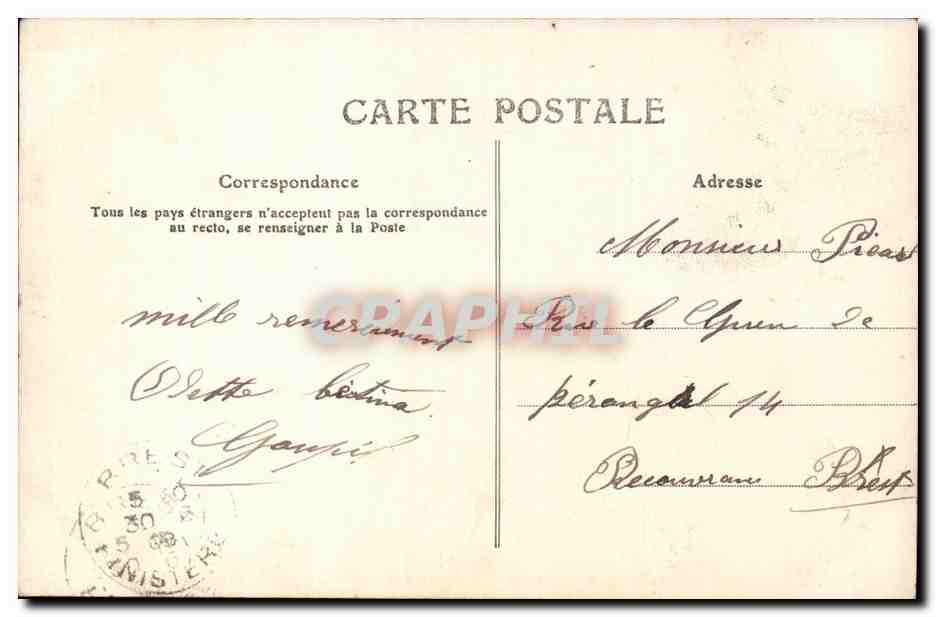 CARTE POSTALE
Correspondance
Tous les pays étrangers n'acceptent pas la correspondance
au recto, se renseigner à la Poste
mille remerciement
Odette bétina
Goupil
Adresse
Monsieur Picar
Rue le Guen 2e
pérangal 14
Recouvran Brest
CRAPHIL
BREST
FINISTERE